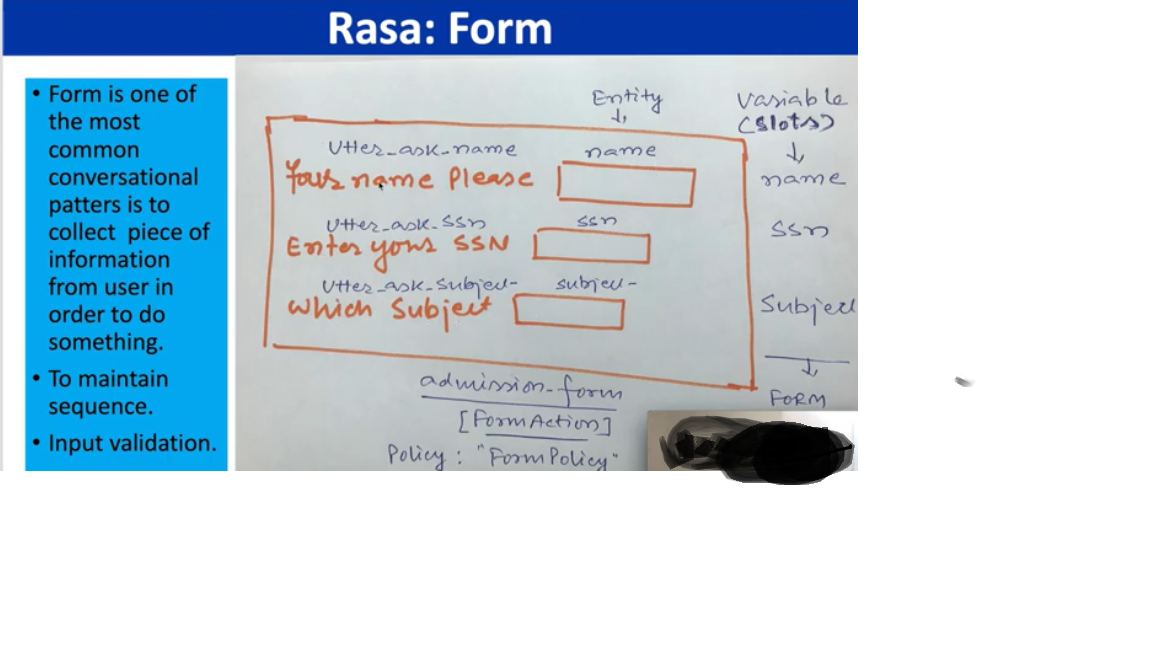 Rasa: Form
• Form is one of
the most
common
conversational
patters is to
collect piece of
information
from user in
order to do
something.
• To maintain
sequence.
• Input validation.
Entity
Variable
(slots)
Utter_ask_name
name
Your name Please
name
Utter_ask_SSn
ssn
Enter your SSN
SSn
Utter_ask_Subject
subject
Which Subject
Subject
admission_form
FORM
[FormAction]
Policy : "FormPolicy"